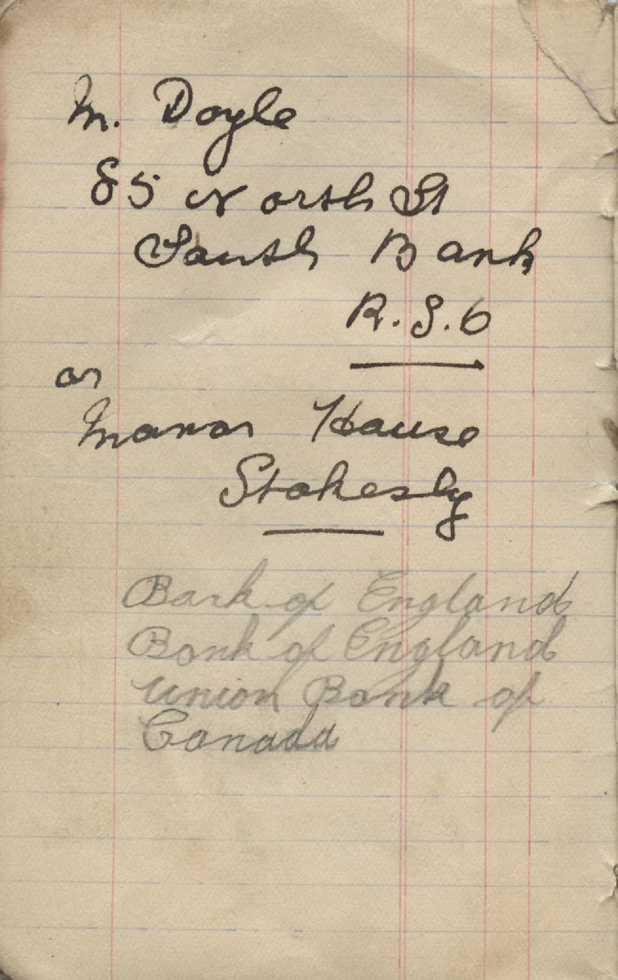 M. Doyle
85 North St
South Bank
R.S.O
or
Manor House
Stokesly
Bank of England
Bank of England
Union Bank of
Canada